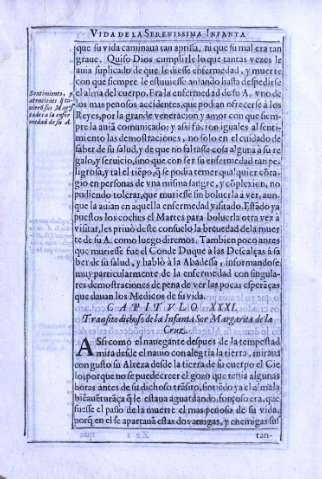 VIDA DE LA SERENISSIMA INFANTA
que su vida caminaua tan aprisa, ni que su mal era tan
graue. Quiso Dios cumplirle lo que tantas vezes le
auia suplicado de que le diesse enfermedad, y muerte
con que siempre le estuuiesse amando hasta despedirse
el alma del cuerpo. Era la enfermedad de su A. vno de
Sentimiento, y
atenciones
sus Mag
a la enfer
medad de su A.
los mas penosos accidentes, que podian ofrecerse à los
Reyes, por la grande veneracion y amor con que siempre
la auiã comunicado y assi fuerõ iguales al sentimiento
las demostraciones, no solo en el cuidado de
saber de su salud, y de que no faltasse cosa alguna à su re
galo, y seruicio, sino que con ser su enfermedad tan pe-
ligrosa, y tal el tiẽpo, q̃ se podia temer qualquier cõta-
gio en personas de vna misma sangre, y cõplexion, no
pudiendo tolerar, que muriesse sin boluerla à ver, aun-
que la auian en aquella enfermedad visitado. Estado ya
puestos los coches el Martes para boluerla otra vez à
visitar, les priuò deste consuelo la breuedad de la muer
te de su A. como luego diremos. Tambien poco antes
que muriesse fue el Conde Duque a las Descalças à sa
ber de su salud, y hablò à la Abadessa, informandose
muy particularmente de la enfermedad con singula-
res demostraciones de pena de ver las pocas esperãças
que dauan los Medicos de su vida.
CAPITVLO XXXI.
Transito dichoso de la Infanta Sor Margarita de la
Cruz.
ASsi como el nauegante despues de la tempestad
mira desde el nauio con alegria la tierra, miraua
con gusto su Alteza desde la tierra de su cuerpo el Cie
lo; por que no se puede creer el gozo que tenia algunas
horas antes de su dichoso trãsito, son todo ya el alma la
biẽauẽturãça q̃ le estaua aguardando, forçoso era, que
fuesse el passo de la muerte el mas penoso de su vida,
porq̃ en el se apartauã estas dos amigas, y enemigas sus
tan-